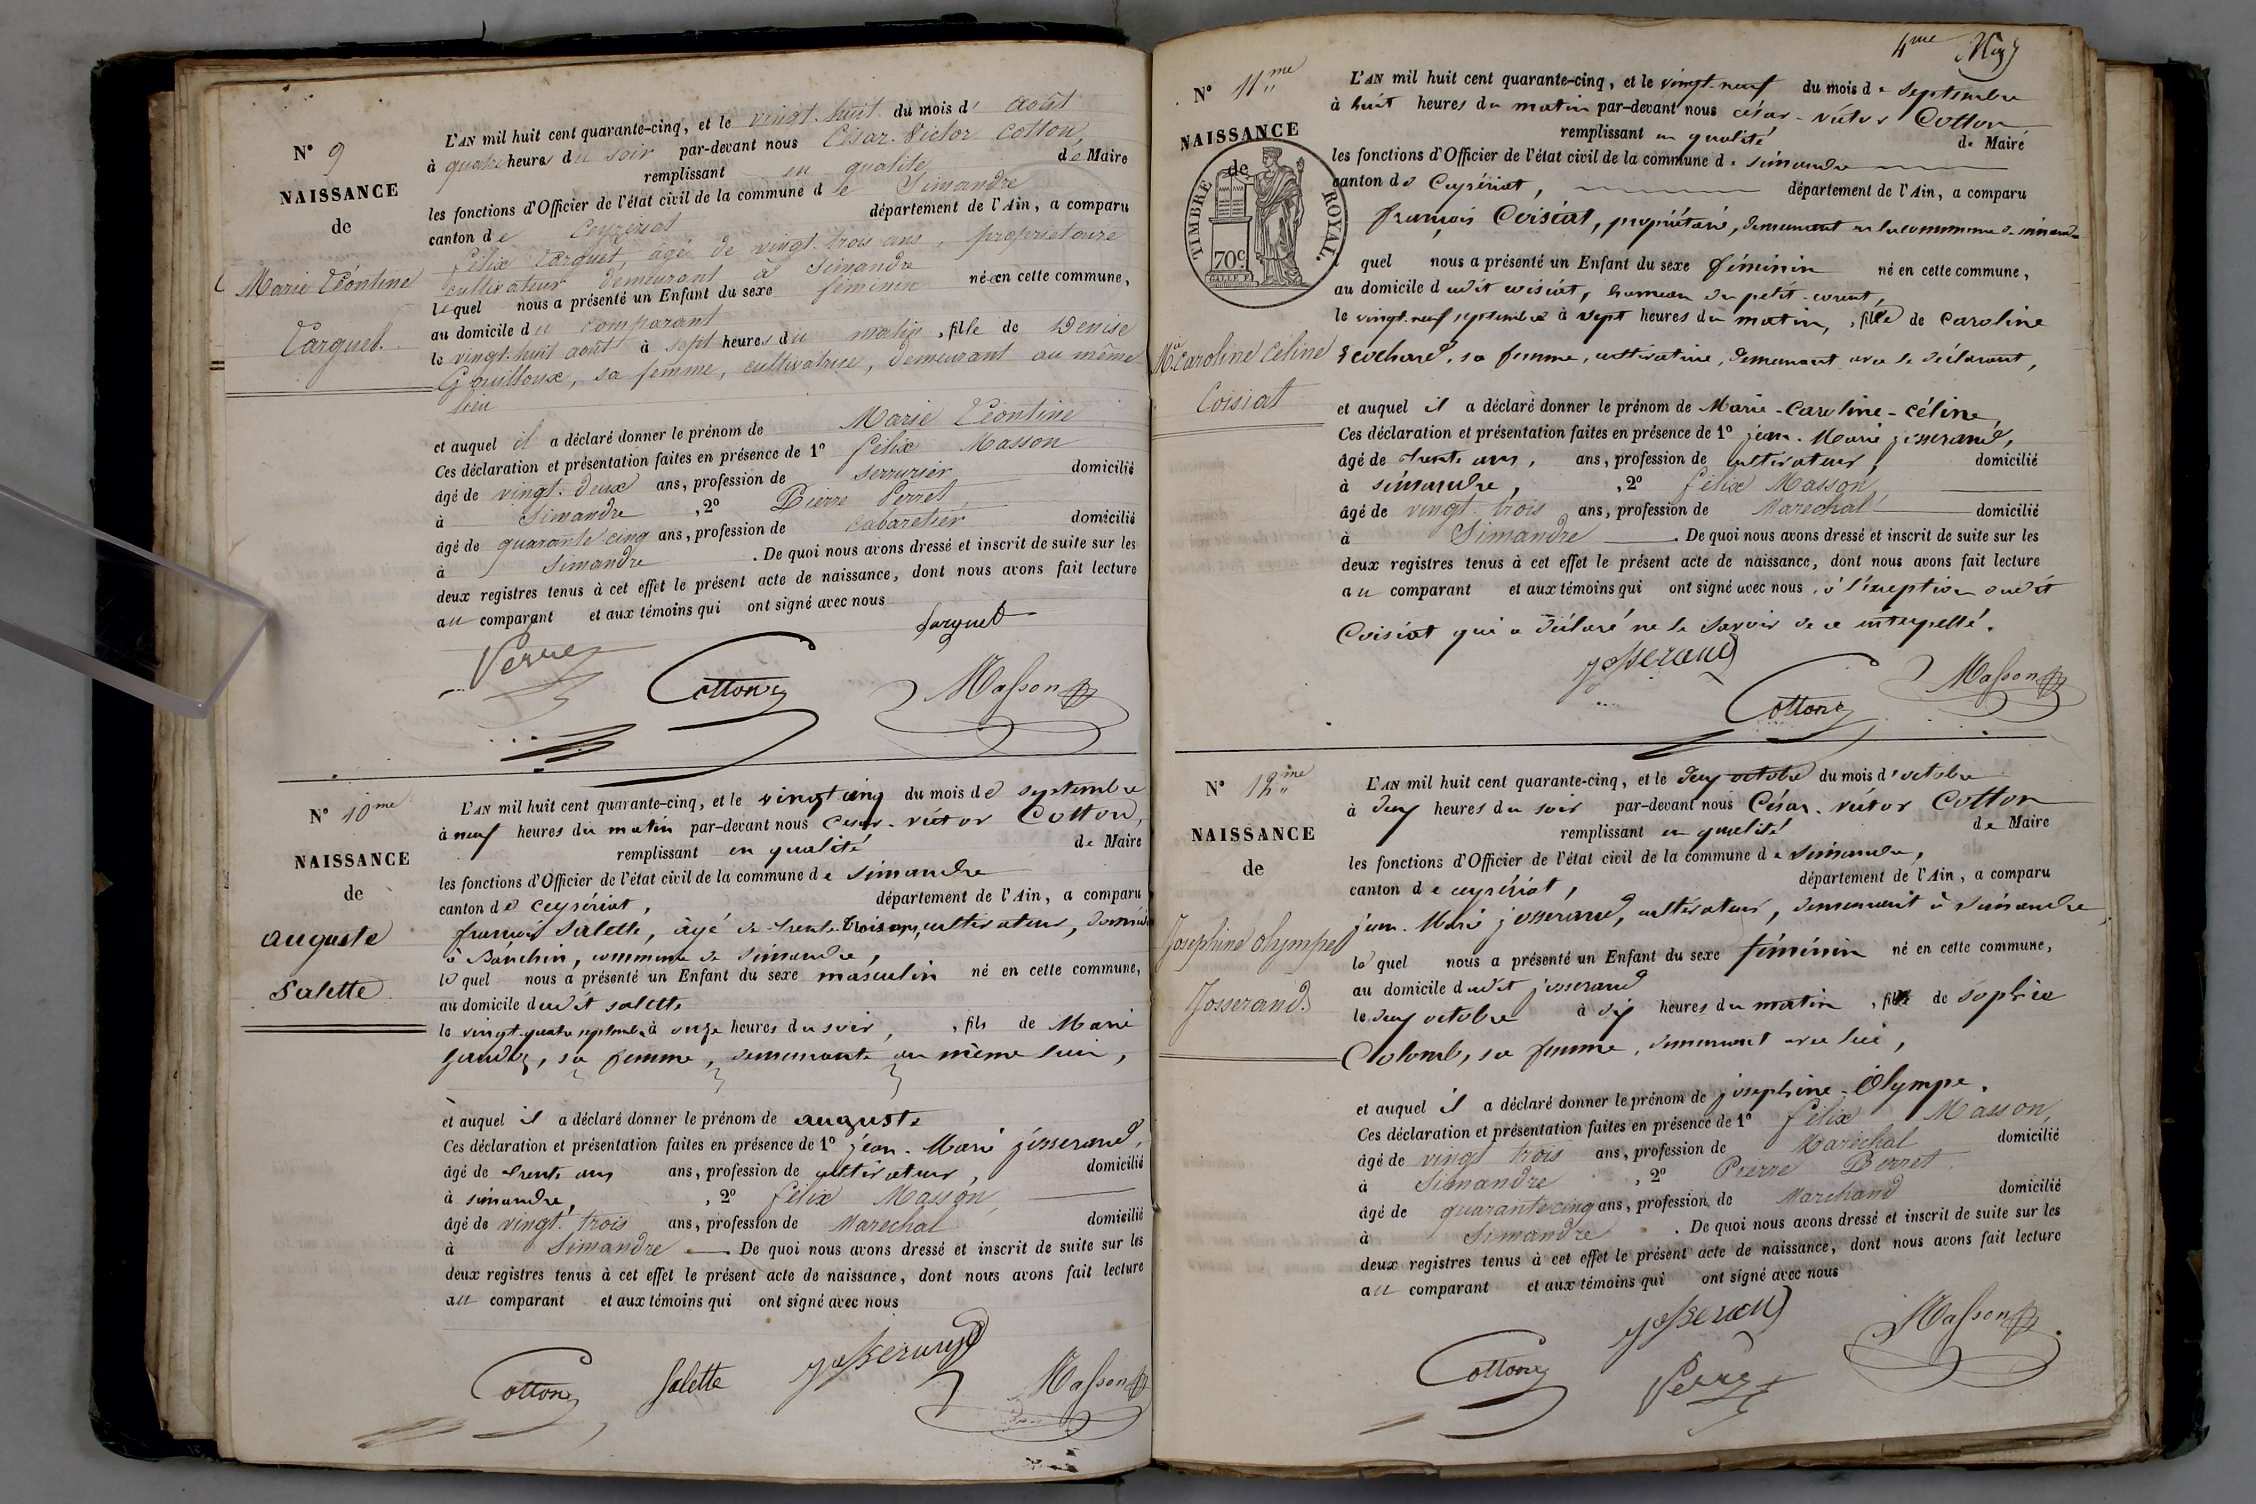 N° 9
NAISSANCE
de
Marie Léontine
Larguet.
L'AN mil huit cent quarante-cinq, et le vingt-huit du mois d' août
à quatre heures du soir par-devant nous César-Victor Cotton,
remplissant en qualité de Maire
les fonctions d'Officier de l'état civil de la commune de Simandre
canton de Ceyzeriat département de l'Ain, a comparu
félix Larguet, âgé de vingt-trois ans, propriétaire
cultivateur demeurant à Simandre
lequel nous a présenté un Enfant du sexe féminin né en cette commune,
au domicile du comparant
le vingt-huit août à sept heures du matin, fille de Denise
Gouilloux, sa femme, cultivatrice, demeurant au même
lieu
et auquel il a déclaré donner le prénom de Marie Léontine
Ces déclaration et présentation faites en présence de 1° félix Masson
âgé de vingt-deux ans, profession de serrurier domicilié
à Simandre, 2° Pierre Perret
âgé de quarante cinq ans, profession de cabaretier domicilié
à Simandre. De quoi nous avons dressé et inscrit de suite sur les
deux registres tenus à cet effet le présent acte de naissance, dont nous avons fait lecture
au comparant et aux témoins qui ont signé avec nous
Larguet
Perret
Cotton
Masson
N° 10me
NAISSANCE
de
auguste
Salette
L'AN mil huit cent quarante-cinq, et le vingt cinq du mois de septembre
à neuf heures du matin par-devant nous César-victor Cotton,
remplissant en qualité de Maire
les fonctions d'Officier de l'état civil de la commune de simandre
canton de ceyzériat, département de l'Ain, a comparu
françois Salette, âgé de trente trois ans, cultivateur, demeurant
à Banchin, commune de simandre,
lequel nous a présenté un Enfant du sexe masculin né en cette commune,
au domicile dudit salette
le vingt-quatre septembre à onze heures du soir, fils de Marie
, sa femme, demeurante au même lieu,
et auquel il a déclaré donner le prénom de auguste
Ces déclaration et présentation faites en présence de 1° jean-Marie josserand,
âgé de trente ans ans, profession de cultivateur, domicilié
à simandre, 2° félix Masson,
âgé de vingt-trois ans, profession de Maréchal domicilié
à Simandre De quoi nous avons dressé et inscrit de suite sur les
deux registres tenus à cet effet le présent acte de naissance, dont nous avons fait lecture
au comparant et aux témoins qui ont signé avec nous
Cotton
Salette
Josserand
Masson
4me
N° 11me
NAISSANCE
de
TIMBRE ROYAL.
70c
Mie Caroline Céline
Coisiat
L'AN mil huit cent quarante-cinq, et le vingt-neuf du mois de septembre
à huit heures du matin par-devant nous césar-victor Cotton
remplissant en qualité de Maire
les fonctions d'Officier de l'état civil de la commune de simandre
canton de Ceyzériat, département de l'Ain, a comparu
françois Coisiat, propriétaire, demeurant en la commune de simandre
quel nous a présenté un Enfant du sexe féminin né en cette commune,
au domicile dudit coisiat, hameau du petit-corent,
le vingt-neuf septembre à sept heures du matin, fille de Caroline
cochard, sa femme, cultivatrice, demeurant avec le déclarant,
et auquel il a déclaré donner le prénom de Marie-Caroline-Céline,
Ces déclaration et présentation faites en présence de 1° jean-Marie josserand,
âgé de trente ans, ans, profession de cultivateur, domicilié
à simandre, 2° félix Masson
âgé de vingt-trois ans, profession de Maréchal domicilié
à Simandre. De quoi nous avons dressé et inscrit de suite sur les
deux registres tenus à cet effet le présent acte de naissance, dont nous avons fait lecture
au comparant et aux témoins qui ont signé avec nous, à l'exception dudit
Coisiat qui a déclaré ne le savoir de ce interpellé.
Josserand
Masson
Cotton
N° 12me
NAISSANCE
de
Josephine olympe
Josserand.
L'AN mil huit cent quarante-cinq, et le deux octobre du mois d'octobre
à deux heures du soir par-devant nous César-victor Cotton
remplissant en qualité de Maire
les fonctions d'Officier de l'état civil de la commune de simandre,
canton de ceyzériat, département de l'Ain, a comparu
jean-Marie josserand, cultivateur, demeurant à simandre,
lequel nous a présenté un Enfant du sexe féminin né en cette commune,
au domicile dudit josserand
le deux octobre à dix heures du matin, fille de sophie
Colomb, sa femme, demeurant avec lui,
et auquel il a déclaré donner le prénom de josephine-Olympe.
Ces déclaration et présentation faites en présence de 1° félix Masson,
âgé de vingt trois ans, profession de Maréchal domicilié
à Simandre, 2° Pierre Perret.
âgé de quarante cinq ans, profession de Marchand domicilié
à Simandre. De quoi nous avons dressé et inscrit de suite sur les
deux registres tenus à cet effet le présent acte de naissance, dont nous avons fait lecture
au comparant et aux témoins qui ont signé avec nous
Josserand
Masson
Cotton
Perret